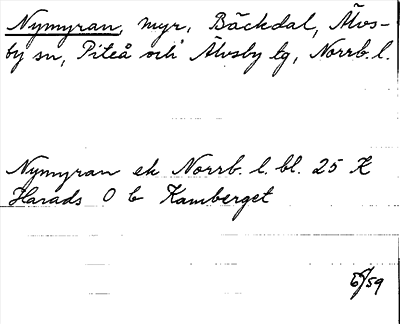 Nymyran, myr, Bäckdal, Älvs-
by sn, Piteå och Älvsby tg, Norrb. l.
Nymyran ek Norrb. l. bl. 25 K
Harads O b Kamberget
6/59